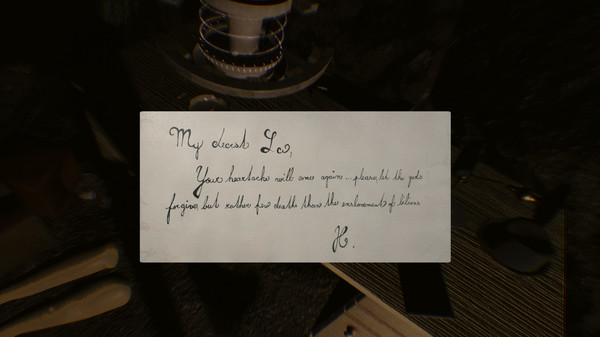 My dearest Lo,
Your heartache will once again... please, let the gods
forgive, but rather few deaths than the enslavement of
H.